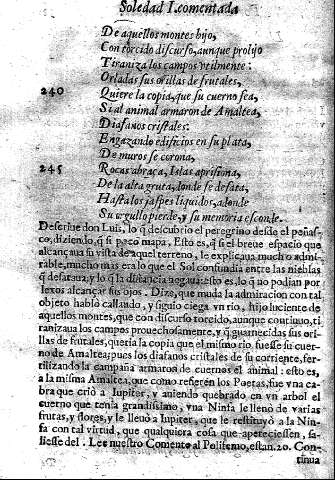 Soledad I. comentada
De aquellos montes hijo,
Con torcido discurso, aunque prolijo
Tiraniza los campos vtilmente:
Orladas sus orillas de frutales,
240 Quiere la copia, que su cuerno sea,
Si al animal armaron de Amaltea,
Diafanos cristales:
Engazando edificios en su plata,
De muros se corona,
245 Rocas abraça, Islas aprisiona,
De la alta gruta, donde se desata,
Hasta los jaspes liquidos, adonde
Su orgullo pierde, y su memoria esconde.
Descriue don Luis, lo q̃ descubrio el peregrino desde el peñas-
co, diziendo, q̃ si poco mapa, Esto es, q̃ si el breue espacio que
alcançaua su vista de aquel terreno, le explicaua mucho admi-
rable, mucho mas era lo que el Sol confundia entre las nieblas
q̃ desataua, y lo q̃ la distancia negaua: esto es, lo q̃ no podian por
lexos alcançar sus ojos. Dize, que muda la admiracion con tal
objeto habló callando, y siguio ciega vn rio, hijo luciente de
aquellos montes, que con discurso torcido, aunque continuo, ti-
ranizaua los campos prouechosamente, y q̃ guarnecidas sus ori-
llas de frutales, queria la copia que el mismo rio fuesse su cuer-
no de Amaltea; pues los diafanos cristales de su corriente, fer-
tilizando la campaña armaron de cuernos el animal: esto es,
a la misma Amaltea, que como refieren los Poetas, fue vna ca-
bra que criò a Iupiter, y auiendo quebrado en vn arbol el
cuerno que tenia grandissimo, vna Ninfa le llenò de varias
frutas, y flores, y le lleuò a Iupiter, que le restituyò a la Nin-
fa con tal virtud, que qualquiera cosa que apeteciessen, sa-
liesse del. Lee nuestro Comento al Polifemo, estan. 20. Con-
tinua